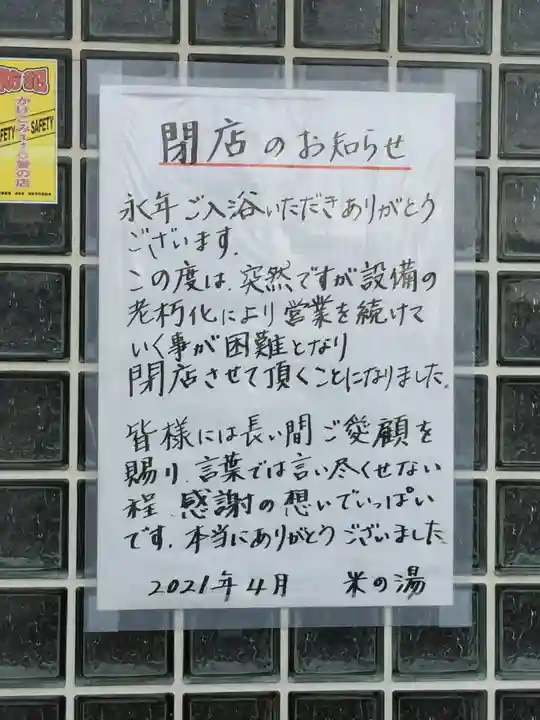 防犯
かけこみ110番の店
SAFETY
SAFETY
閉店のお知らせ
永年ご入浴いただきありがとう
ございます.
この度は、突然ですが設備の
老朽化により営業を続けて
いく事が困難となり
閉店させて頂くことになりました.
皆様には長い間ご愛顧を
賜り、言葉では言い尽くせない
程、感謝の想いでいっぱい
です. 本当にありがとうございました
2021年4月 米の湯